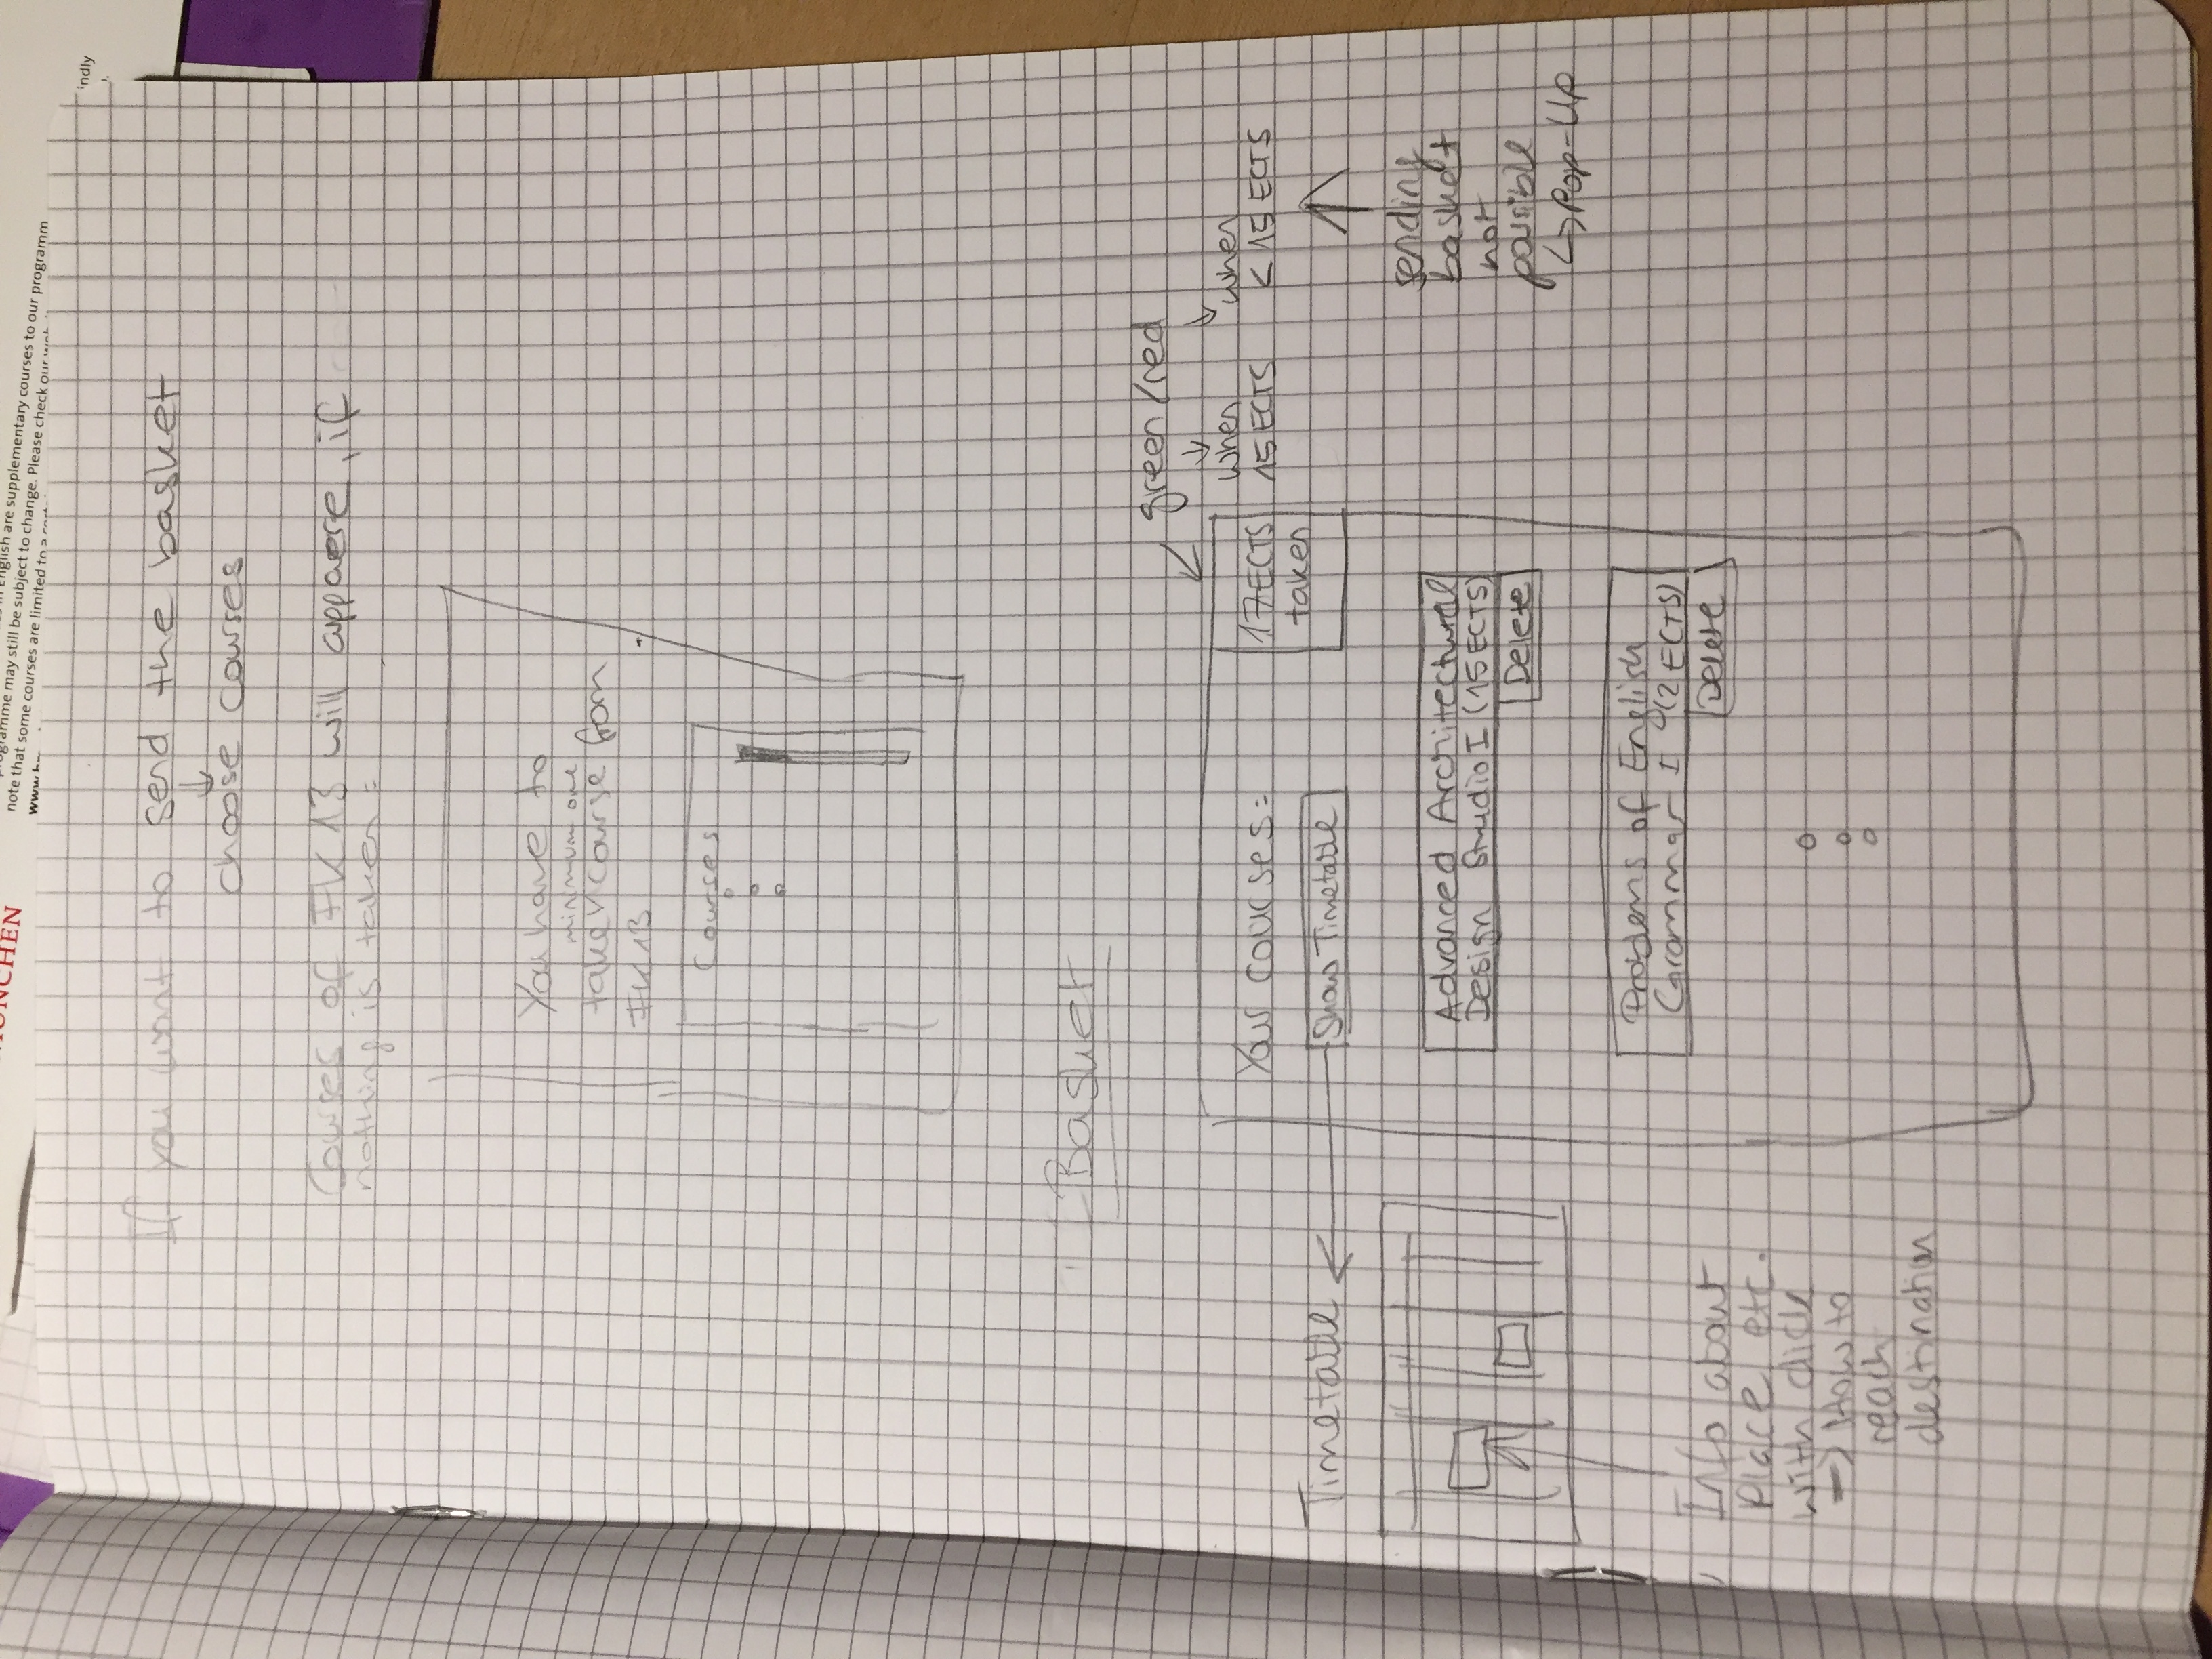 MÜNCHEN
English are supplementary courses to our programm
programme may still be subject to change. Please check our
note that some courses are limited to a
indly
If you want to send the basket
↓
choose courses
Courses of FK13 will appaere, if
nothing is taken:
You have to
minimum one
take ✓ course from
FK13
Courses
Basket
green/red
↓ ↓
when when
15 ECTS < 15 ECTS
Your courses:
17 ECTS
taken
Show Timetable
Timetable
sending
basket
not
possible
↳ Pop-Up
Advanced Architectural
Design Studio I (15 ECTS)
Delete
Problems of English
Grammar I (2 ECTS)
Delete
Info about
place etc.
with click
→ How to
reach
destination